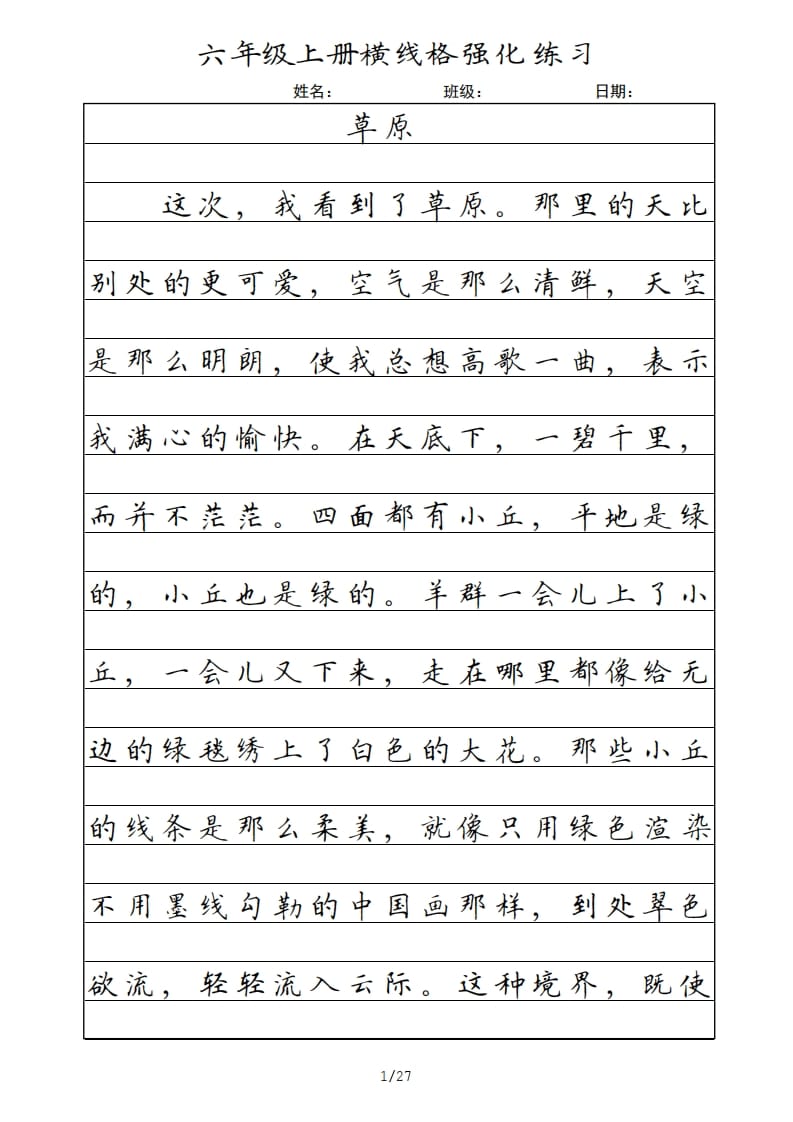 六年级上册横线格强化练习
姓名： 班级： 日期：
草原
这次，我看到了草原。那里的天比
别处的更可爱，空气是那么清鲜，天空
是那么明朗，使我总想高歌一曲，表示
我满心的愉快。在天底下，一碧千里，
而并不茫茫。四面都有小丘，平地是绿
的，小丘也是绿的。羊群一会儿上了小
丘，一会儿又下来，走在哪里都像给无
边的绿毯绣上了白色的大花。那些小丘
的线条是那么柔美，就像只用绿色渲染
不用墨线勾勒的中国画那样，到处翠色
欲流，轻轻流入云际。这种境界，既使
1/27